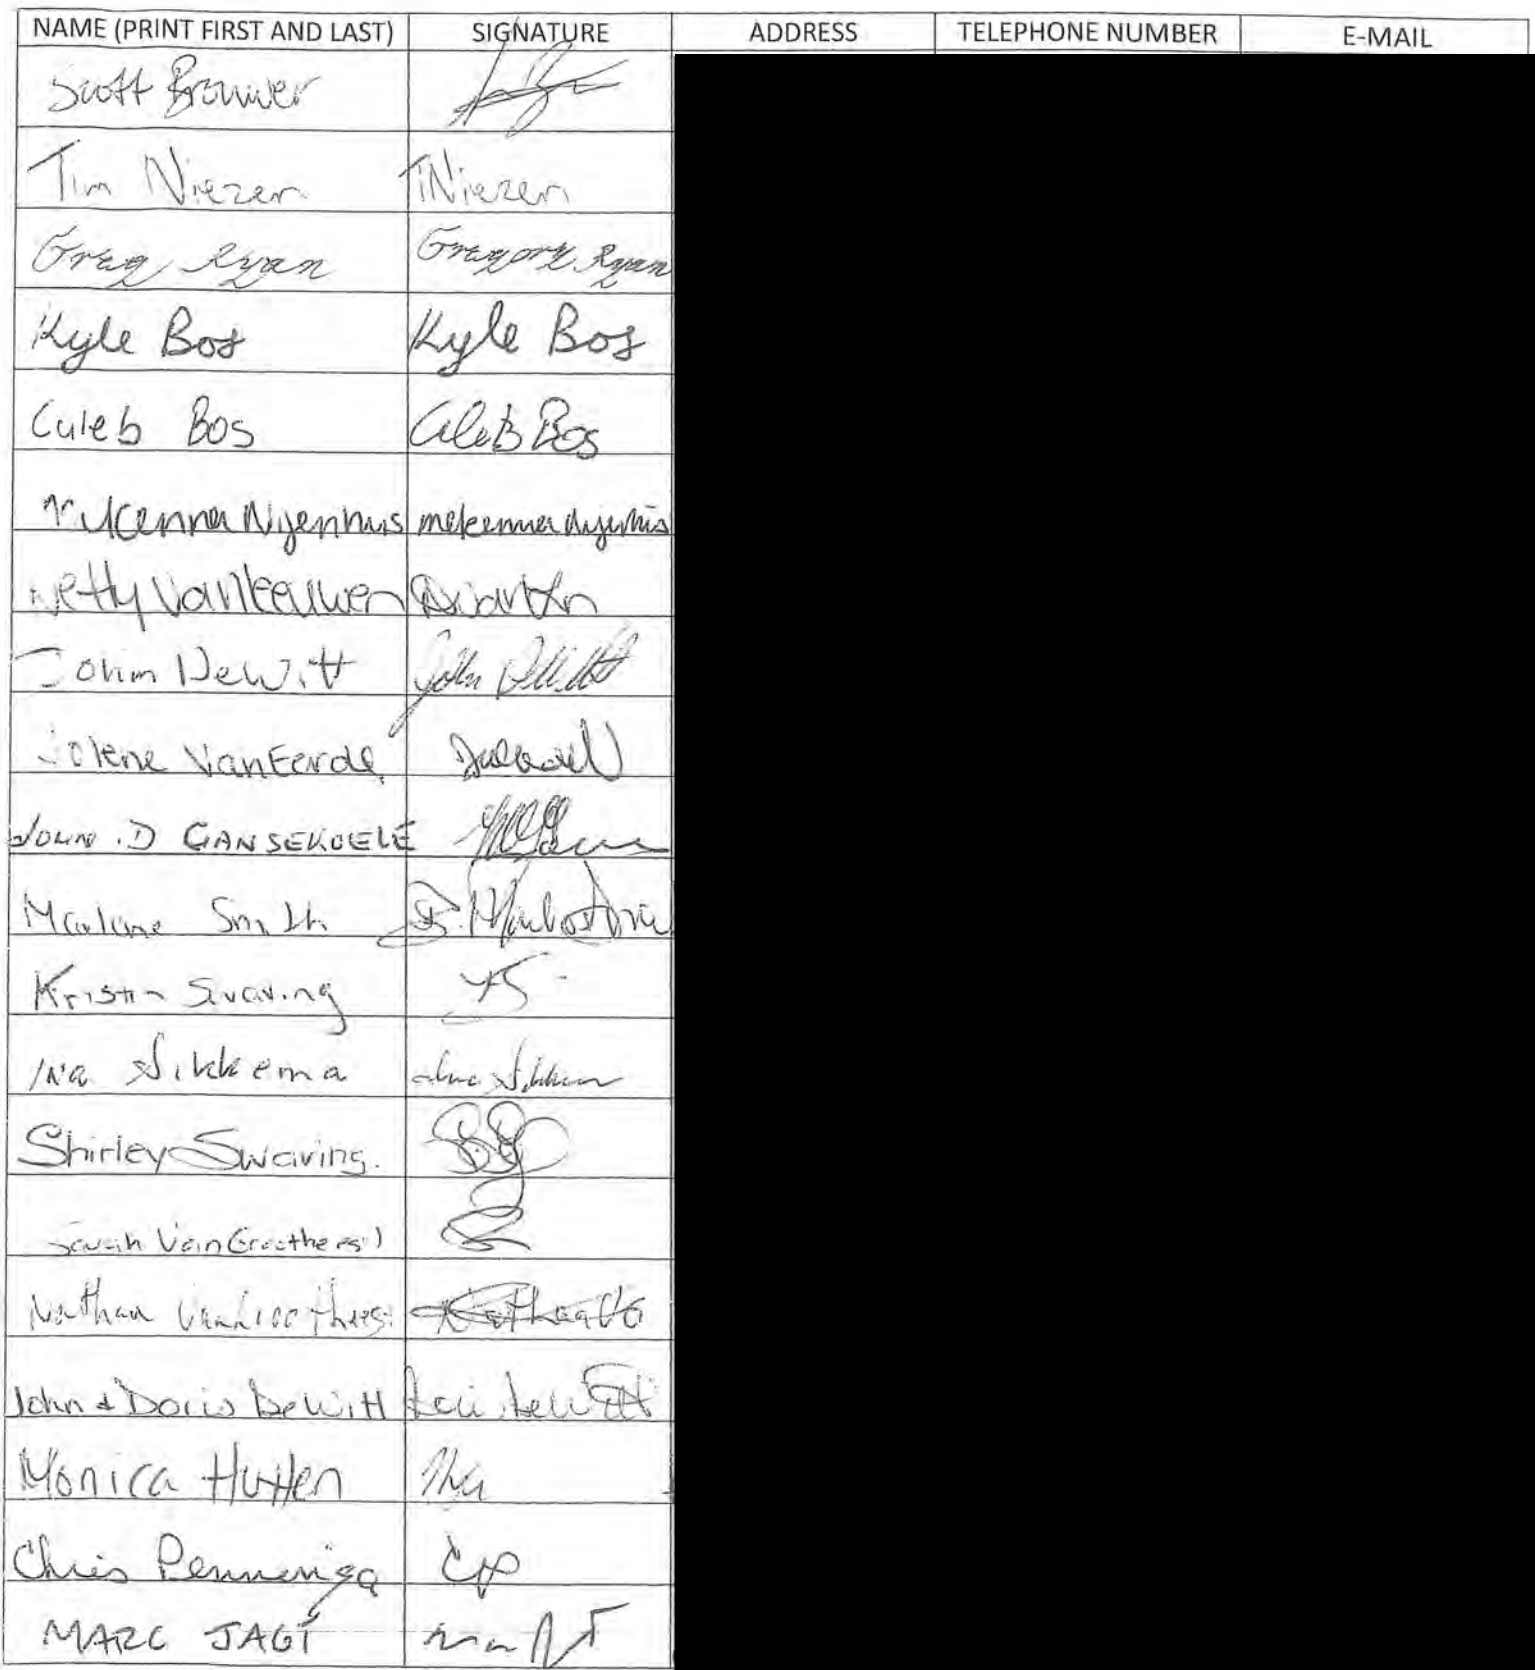 NAME (PRINT FIRST AND LAST) SIGNATURE ADDRESS TELEPHONE NUMBER E-MAIL
Scott Brouwer
Tim Niezen TNiezen
Greg Ryan Gregory Ryan
Kyle Bos Kyle Bos
Caleb Bos Caleb Bos
Mckenna Nyenhuis mckenna nyenhuis
Netty VanLeeuwen
John DeWitt John DeWitt
Jolene VanEerde
JOHN .D GANSEKOELE
Marlane Smith
Kristin Swaving KS
Ina Sikkema Ina Sikkema
Shirley Swaving.
Sarah VanGroothees
Nathan VanGroothees Nathan VG
John & Doris DeWitt DeWitt
Monica Hutten
Chris Penninga CP
MARC JAGT